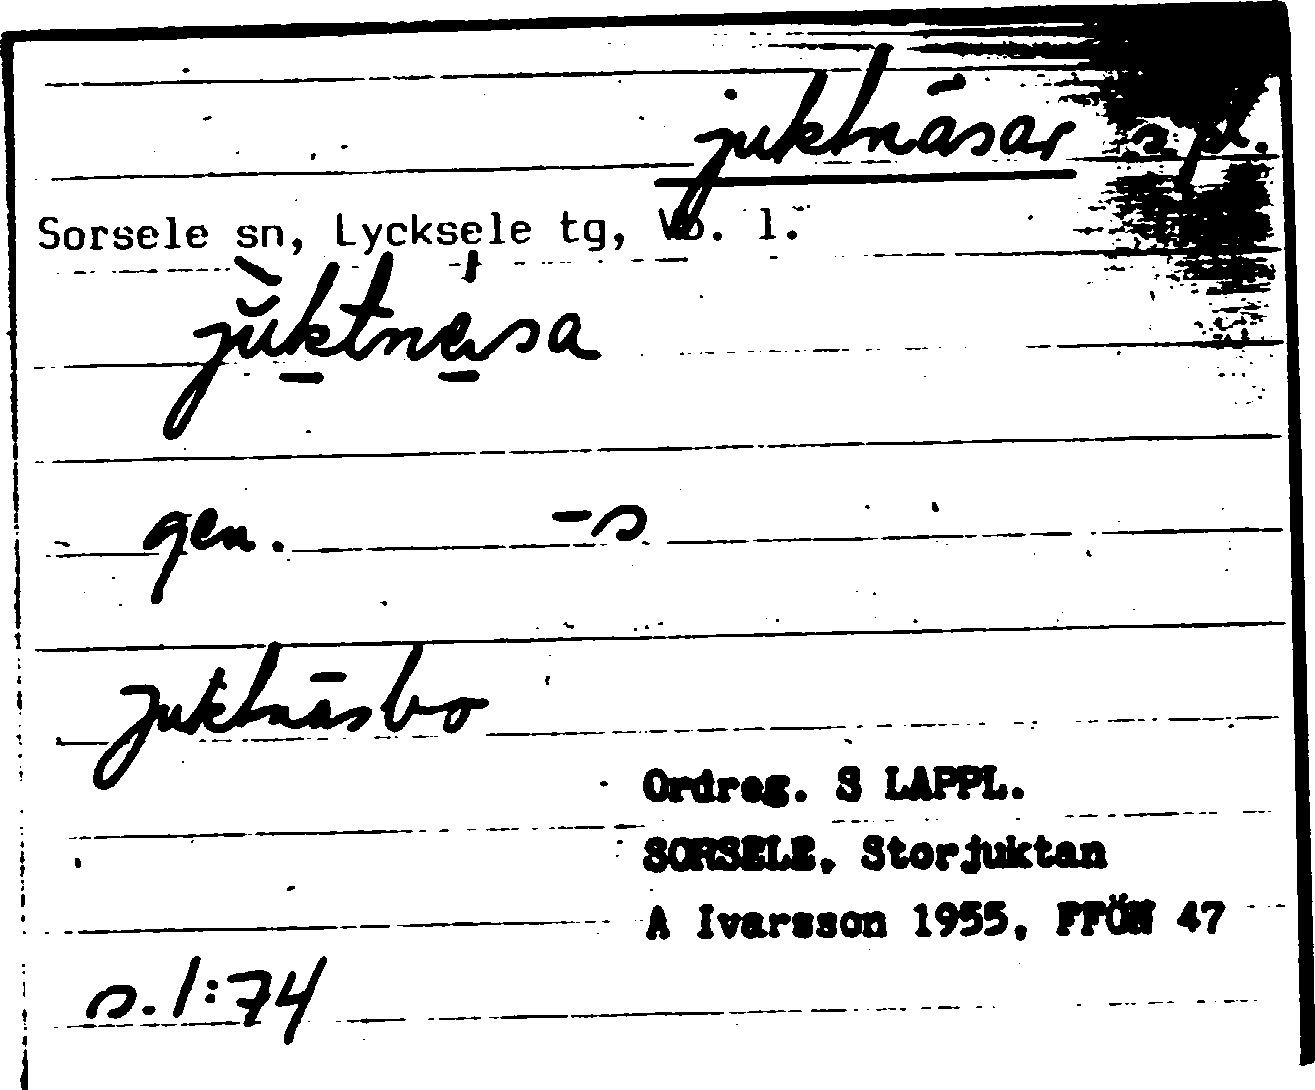 juktnäsar s. pl.
Sorsele sn, Lycksele tg, Vb. l.
juktnäsa
gen. -s
Juktnäsbo
Ordreg. S LAPPL.
SORSELE, Storjuktan
A Ivarsson 1955, FFÖN 47
s. 1:74